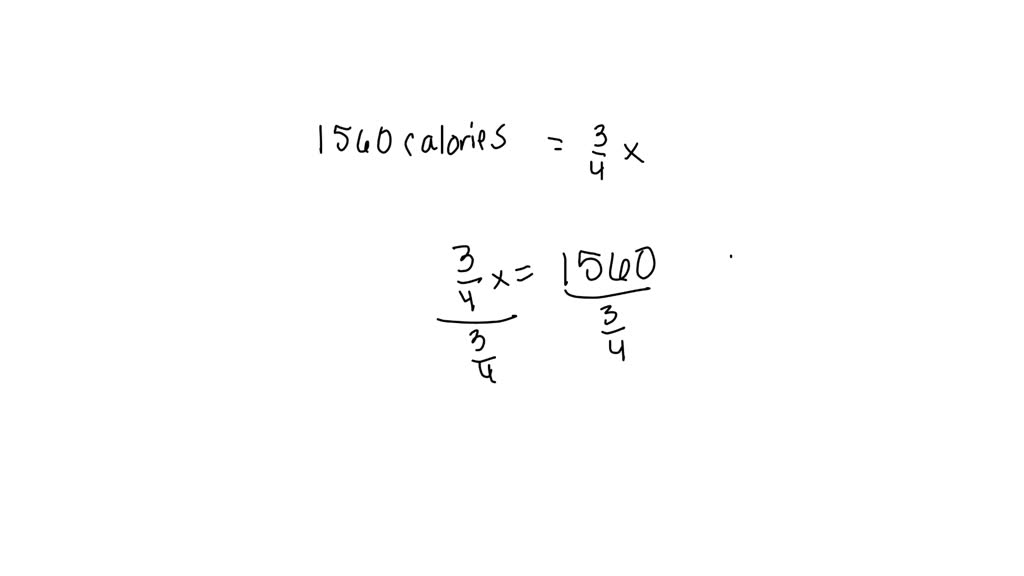 1560 calories = 3/4 x
3/4 x = 1560
3/4 3/4